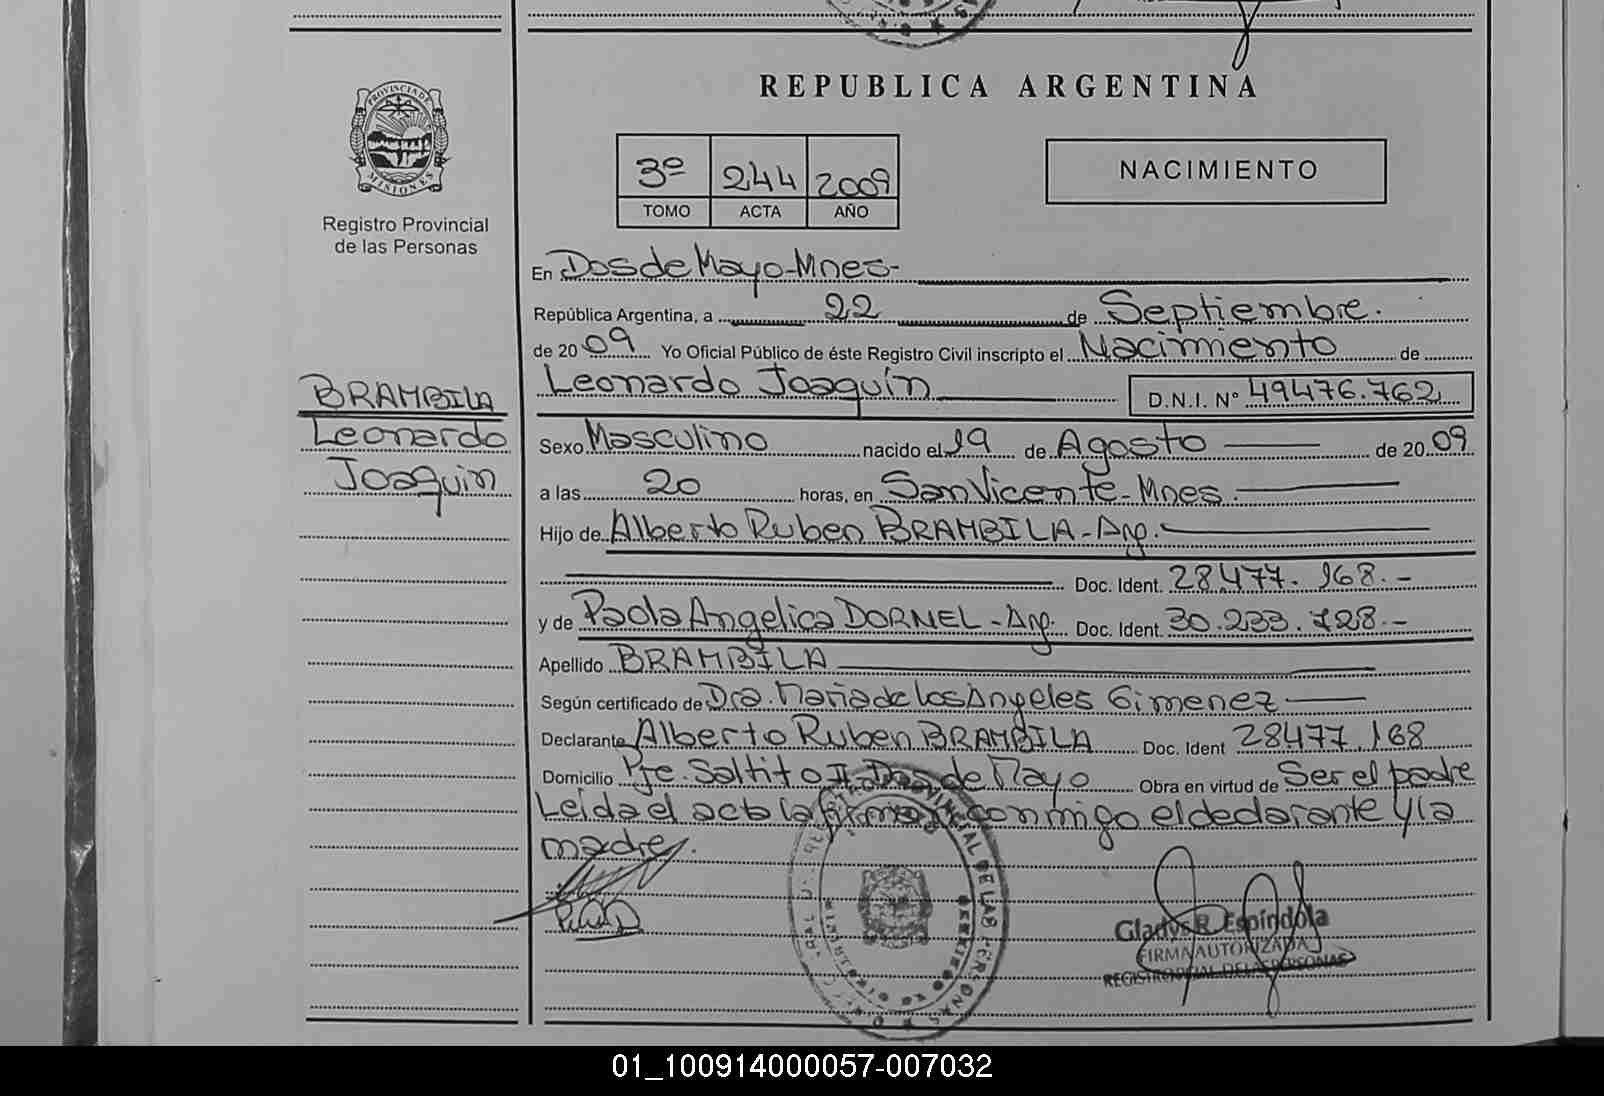 REPUBLICA ARGENTINA
PROVINCIA DE
MISIONES
Registro Provincial
de las Personas
3º 244 2009
TOMO ACTA AÑO
NACIMIENTO
BRAMBILA
Leonardo
Joaquin
En Dos de Mayo - Mnes -
República Argentina, a 22 de Septiembre.
de 2009 Yo Oficial Público de éste Registro Civil inscripto el Nacimiento de
Leonardo Joaquín D.N.I. Nº 49476.762
Sexo Masculino nacido el 19 de Agosto de 20 09
a las 20 horas, en San Vicente - Mnes.
Hijo de Alberto Ruben BRAMBILA - Arg.
Doc. Ident. 28.477.168.-
y de Paola Angelica DORNEL - Arg. Doc. Ident. 30.233.728.-
Apellido BRAMBILA
Según certificado de Dra. Maria de los Angeles Gimenez
Declarante Alberto Ruben BRAMBILA Doc. Ident 28477.168
Domicilio Pje. Saltito II - Dos de Mayo Obra en virtud de Ser el padre
Leída el acta la firman conmigo el declarante y la
madre.
Gladys R. Espíndola
FIRMA AUTORIZADA
REGISTRO PCIAL DE LAS PERSONAS
01_100914000057-007032